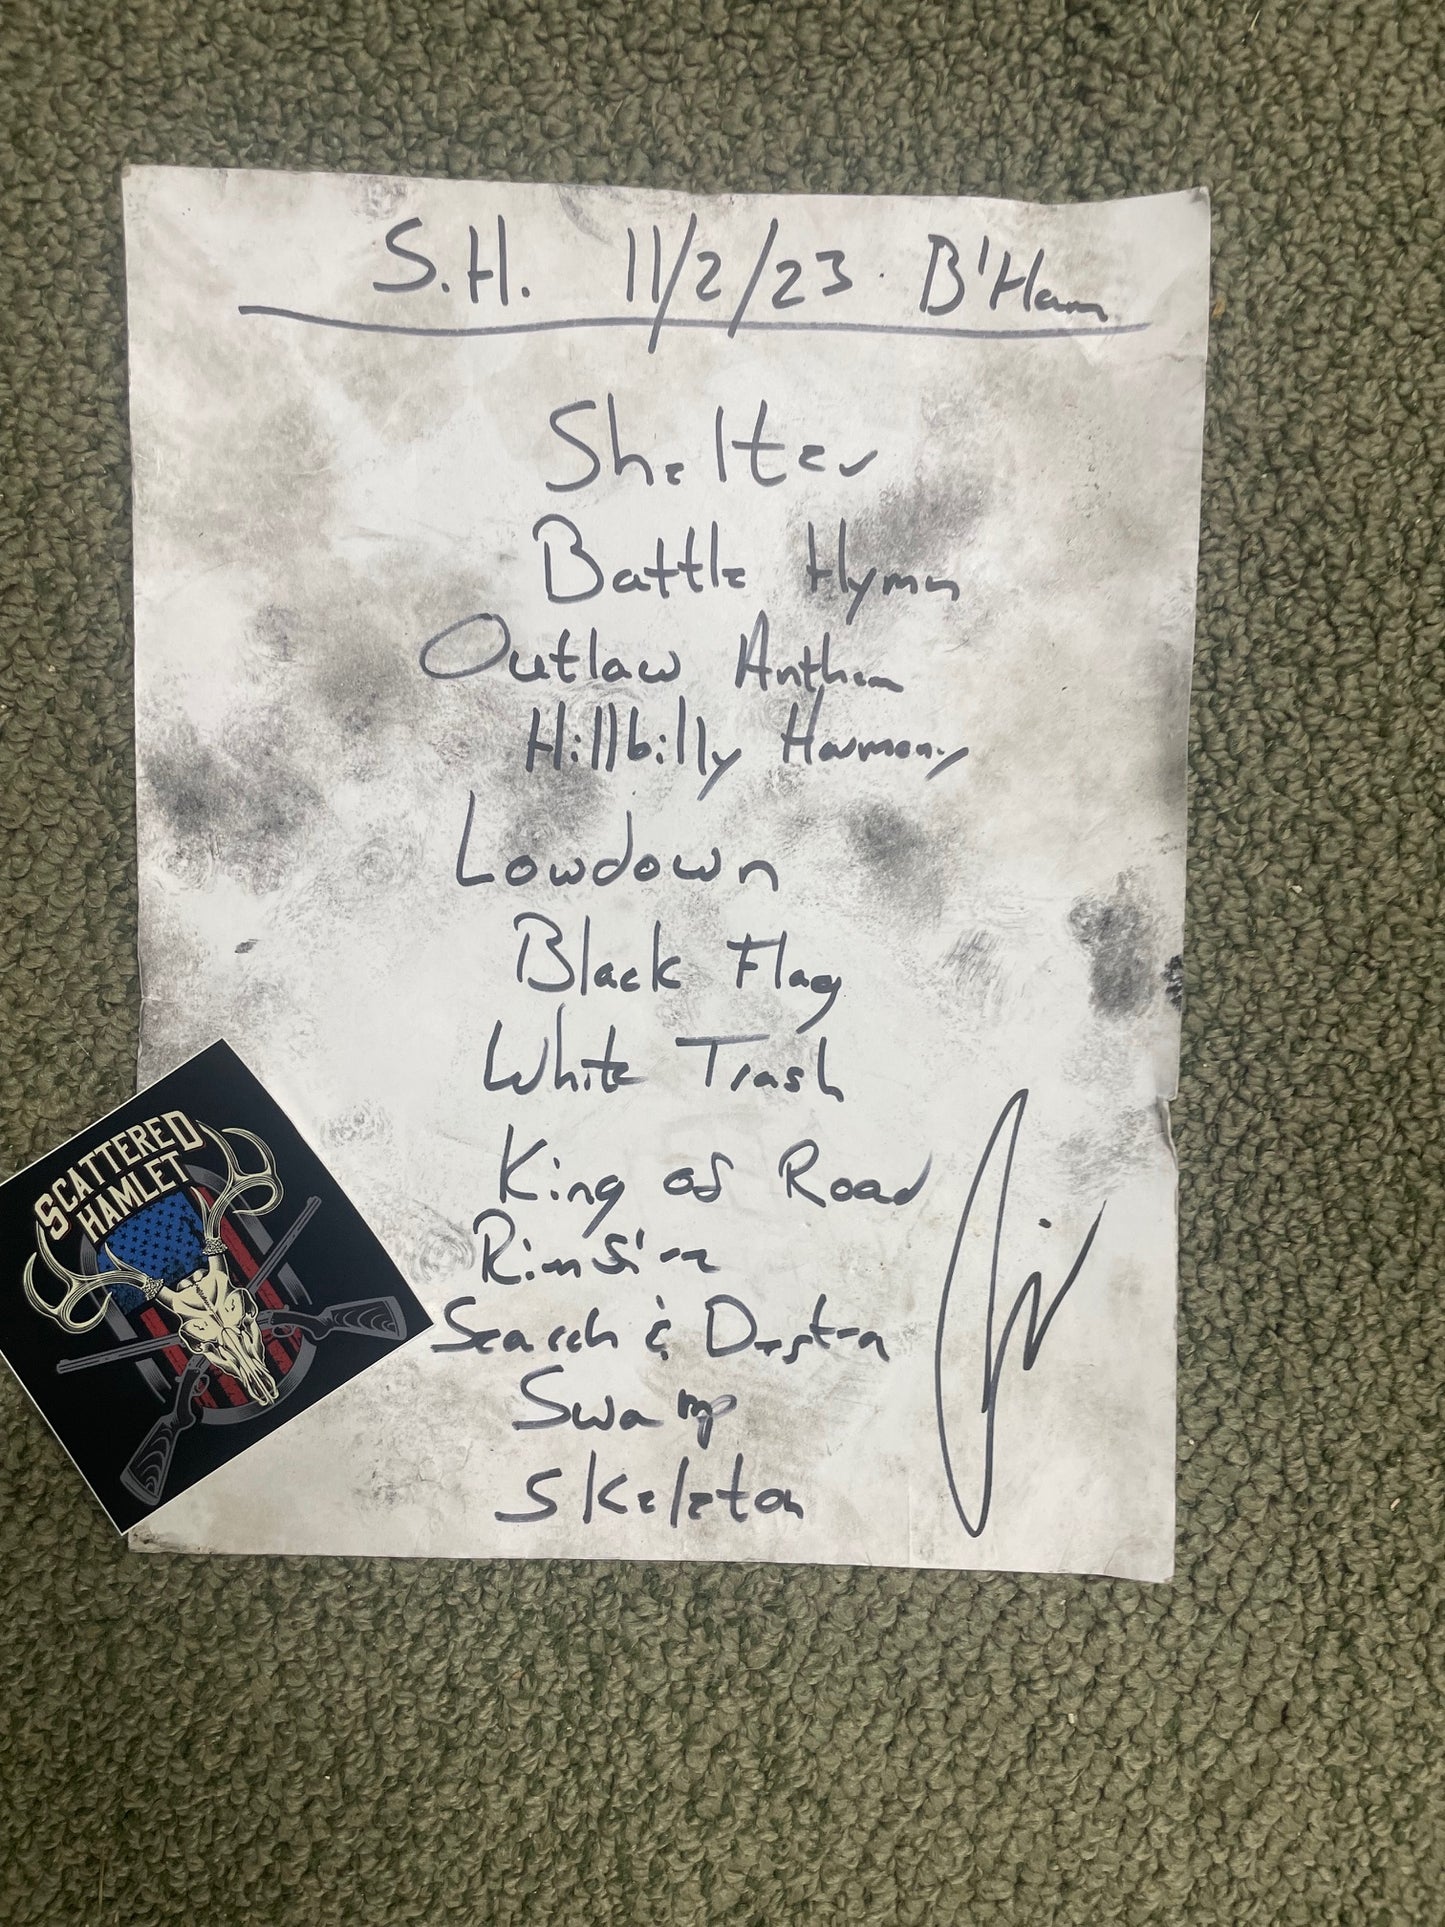 S.H. 11/2/23. B'Ham
Shelter
Battle Hymn
Outlaw Anthem
Hillbilly Harmony
Lowdown
Black Flag
White Trash
King of Road
Rimfire
Search & Destroy
Swamp
Skeleton
SCATTERED
HAMLET